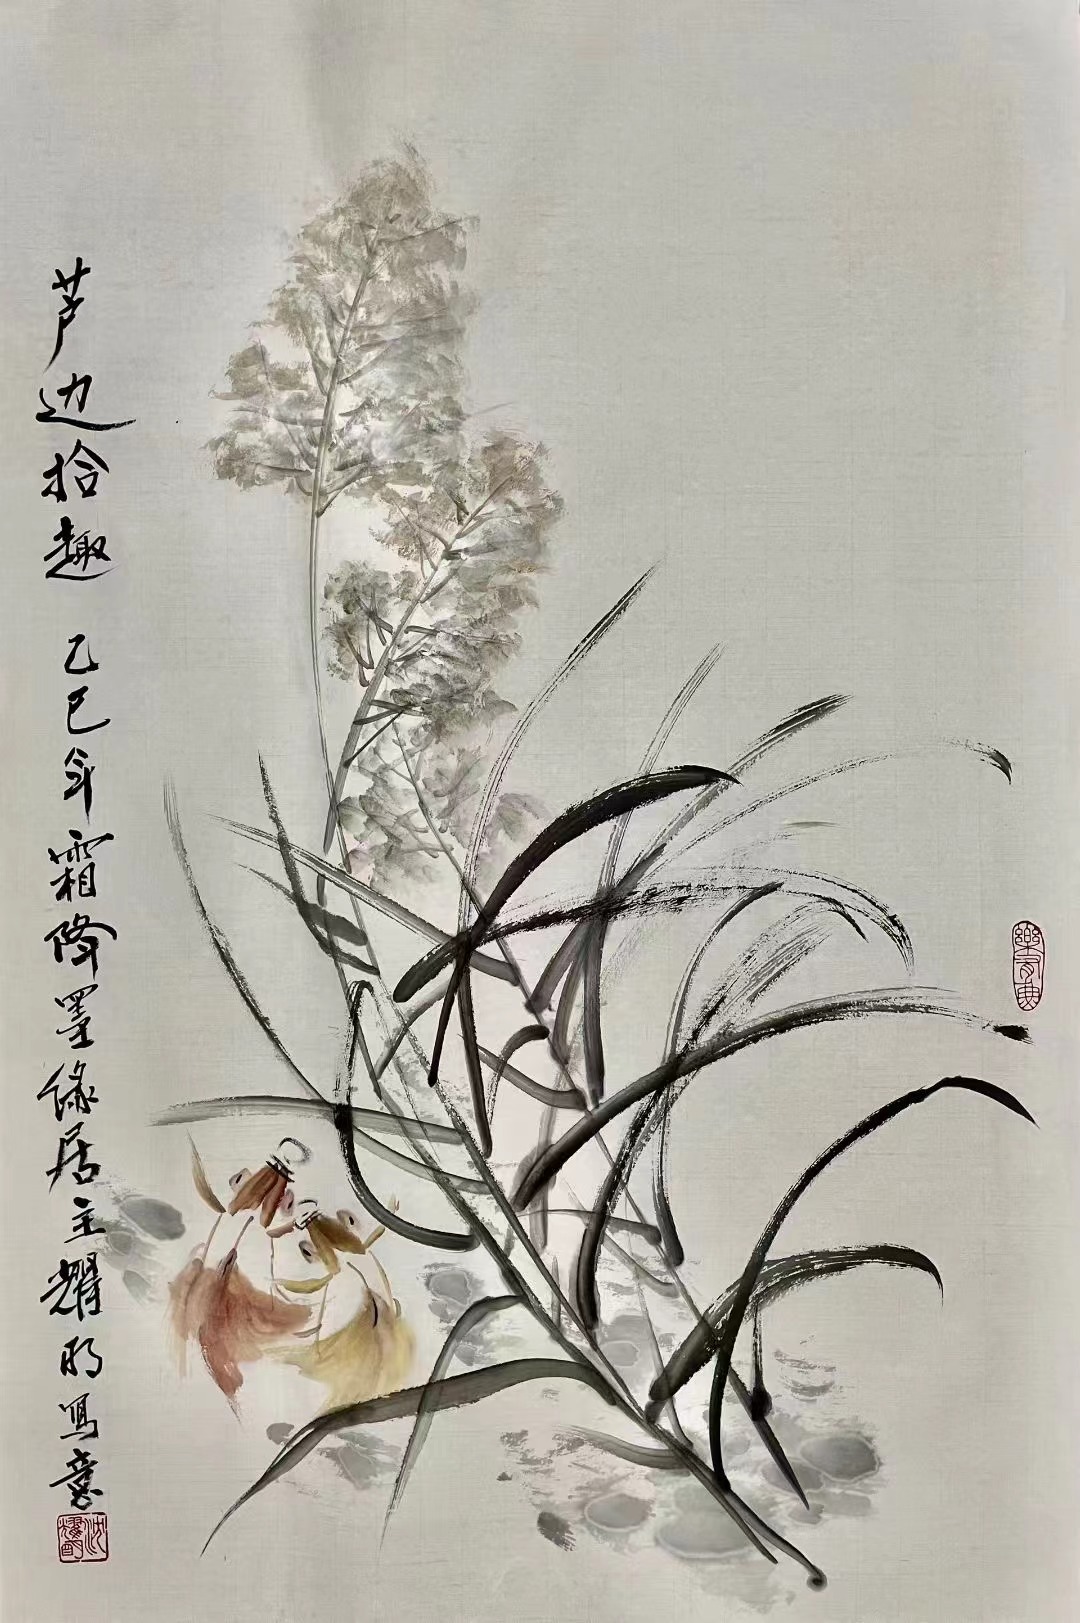 芦边拾趣 乙巳年霜降墨缘居主耀明写意
沈耀明